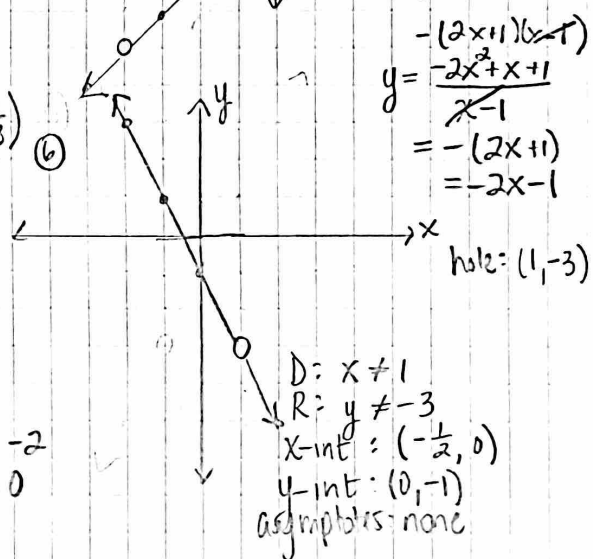 -(2x+1)(x-1)
y = -2x²+x+1
x-1
= -(2x+1)
= -2x-1
y
⑥
x
hole: (1,-3)
D: x ≠ 1
R: y ≠ -3
x-int : (-1/2, 0)
y-int : (0,-1)
asymptotes: none
-2
0